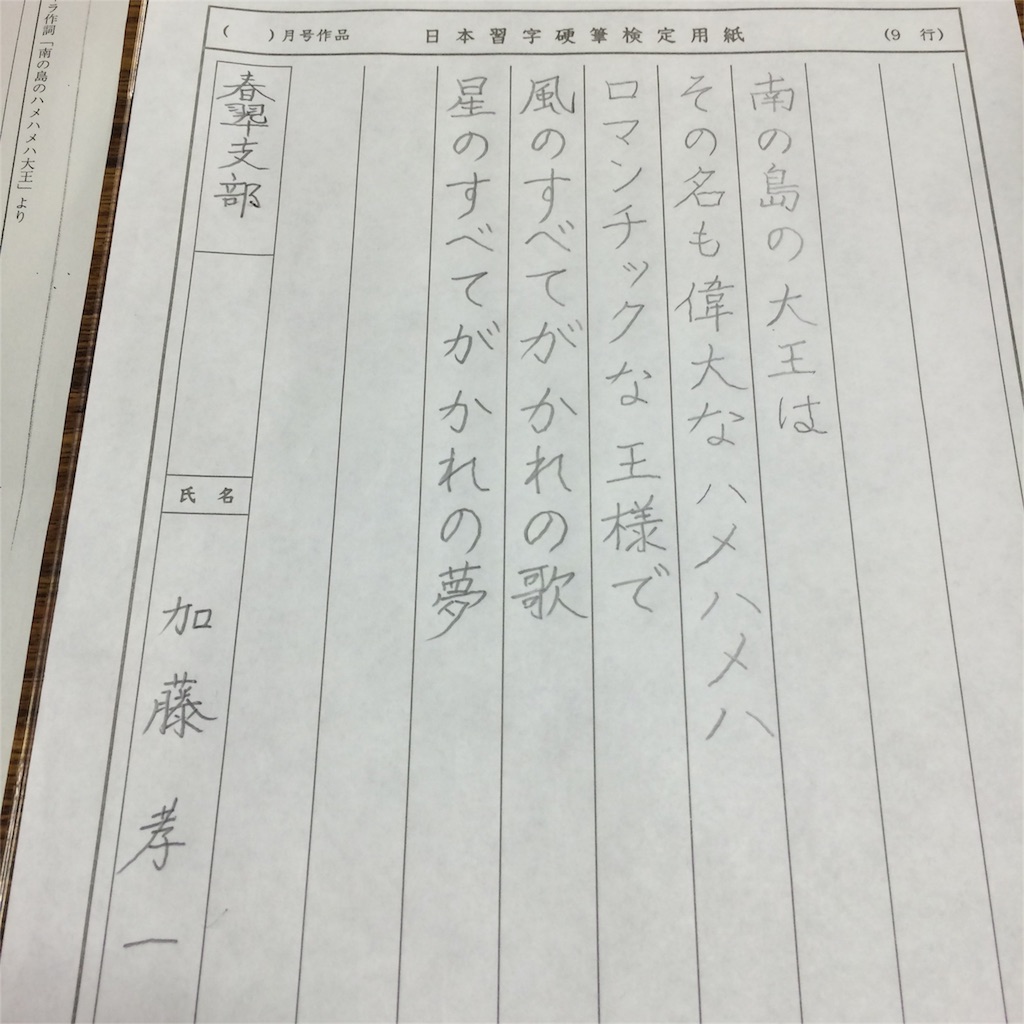 ( )月号作品 日本習字硬筆検定用紙 (9 行)
南の島の大王は
その名も偉大なハメハメハ
ロマンチックな王様で
風のすべてがかれの歌
星のすべてがかれの夢
春翠支部
氏名
加藤孝一
ラ作詞「南の島のハメハメハ大王」より